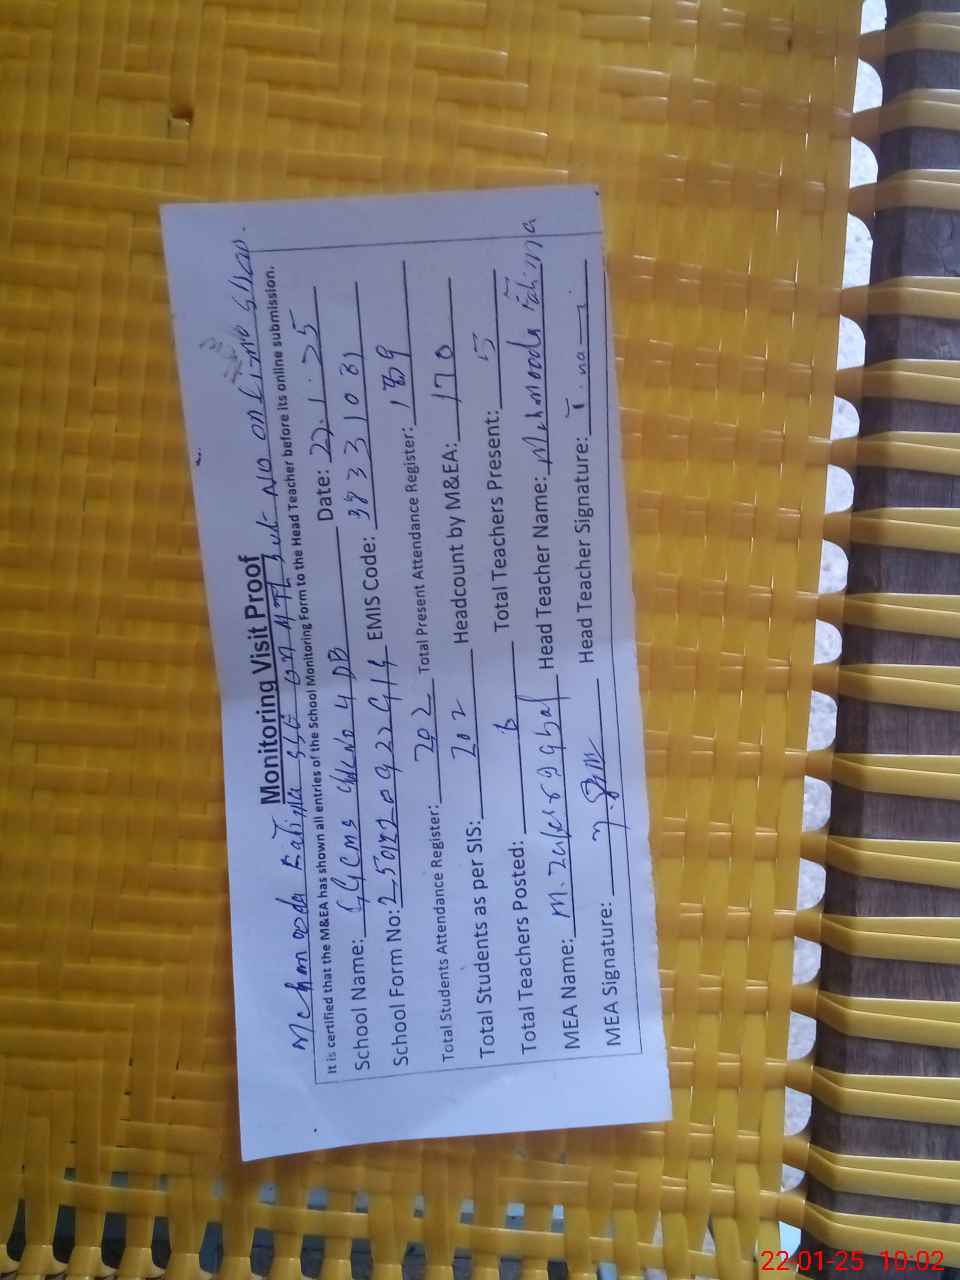 Monitoring Visit Proof
Mehmooda on MTL but No online show.
It is certified that the M&EA has shown all entries of the School Monitoring Form to the Head Teacher before its online submission.
School Name: GGCMS No 4 DB Date: 22.1.25
School Form No: EMIS Code:
Total Students Attendance Register: 202 Total Present Attendance Register: 189
Total Students as per SIS: 202 Headcount by M&EA: 170
Total Teachers Posted: Total Teachers Present: 5
MEA Name: M. Zafar Iqbal Head Teacher Name: Mehmooda Fatima
MEA Signature: Head Teacher Signature:
22-01-25 10:02